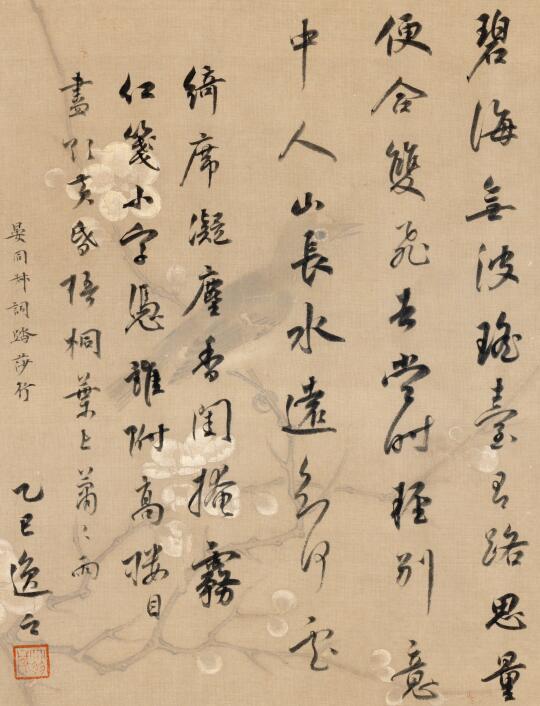 碧海無波瑤臺有路思量
便合雙飛去當時輕別意
中人山長水遠知何處
綺席凝塵香閨掩霧
紅箋小字憑誰附高樓目
盡欲黃昏梧桐葉上蕭〻雨
晏同叔詞踏莎行
乙巳逸